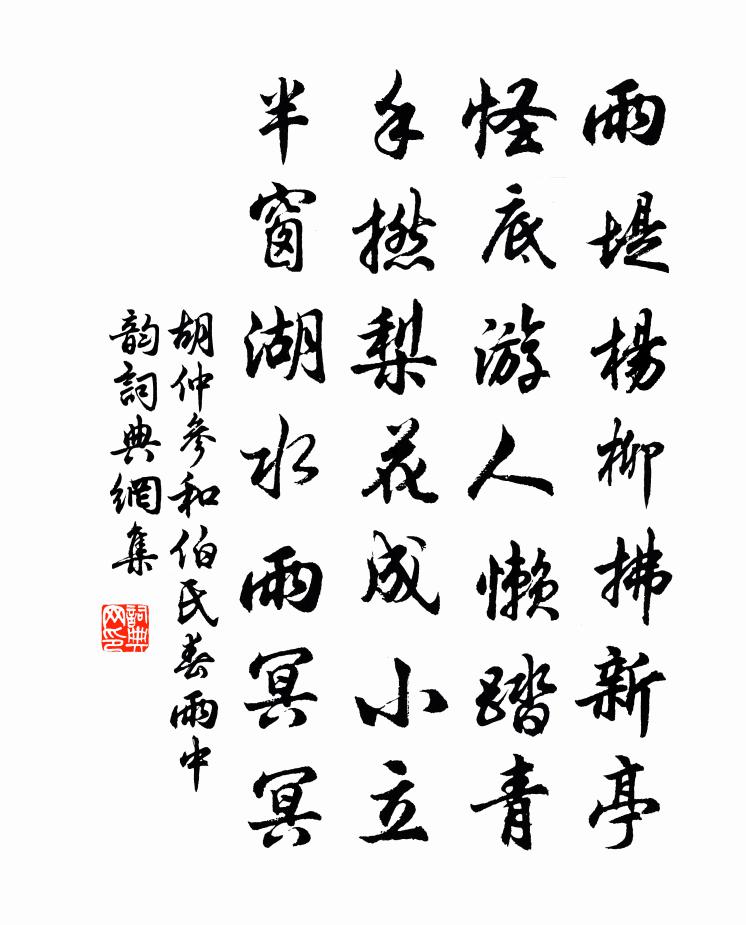 雨堤楊柳拂新亭
怪底游人懶踏青
手撚梨花成小立
半窗湖水雨冥冥
胡仲參和伯氏春雨中
韵詞典網集
詞典網印